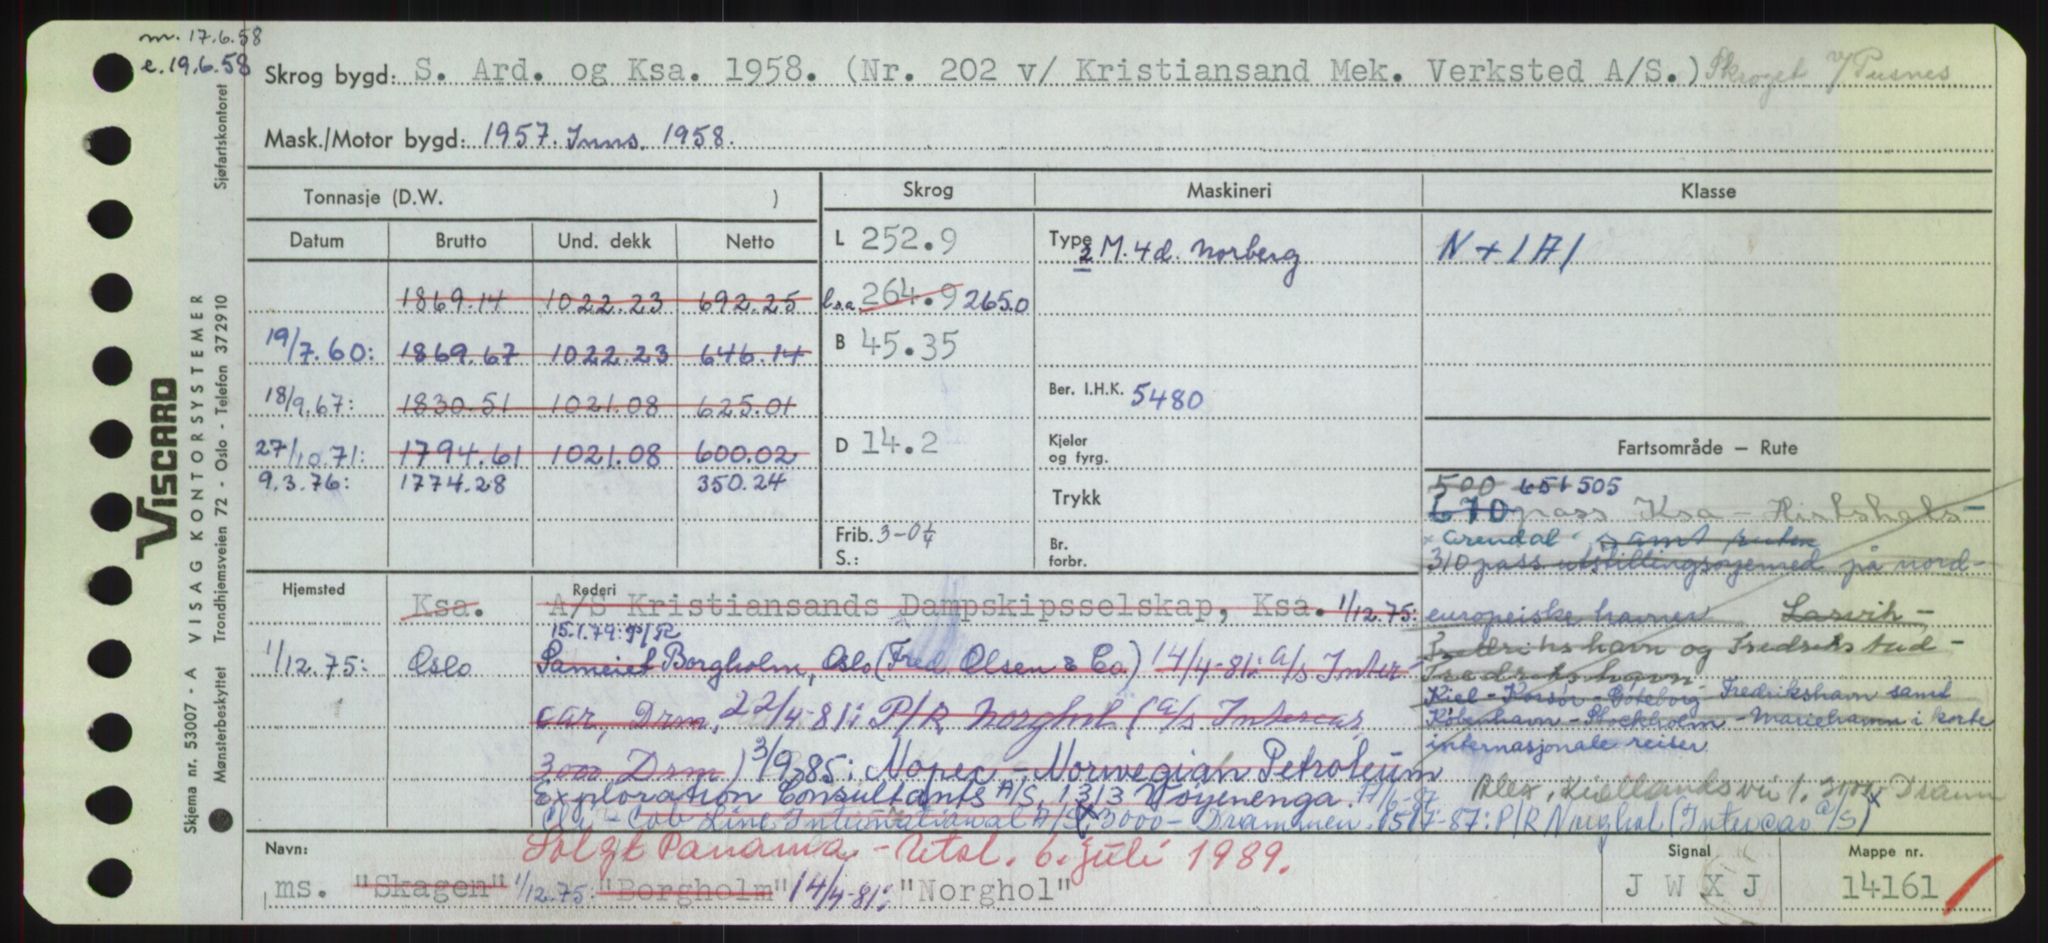 m. 17.6.58
e. 19.6.58
Skrog bygd: S. Ard. og Ksa. 1958. (Nr. 202 v/ Kristiansand Mek. Verksted A/S.) Skroget v/ Pusnes
Mask./Motor bygd: 1957. Inns. 1958.
Tonnasje (D.W. )
Skrog Maskineri Klasse
Datum Brutto Und. dekk Netto
L 252.9
Type 2 M. 4 d. Norberg
N + 1A1
1869.14 1022.23 692.25
b.r.a. 264.9 265.0
19/7.60: 1869.67 1022.23 646.14
B 45.35
18/9.67: 1830.51 1021.08 625.01
Ber. I.H.K. 5480
27/10.71: 1794.61 1021.08 600.02
D 14.2
Kjeler og fyrg.
Fartsområde – Rute
9.3.76: 1774.28 350.24
Trykk
500 651 505
670 pass Ksa - Hirtshals -
Frib. 3-0¼
S.:
Br. forbr.
x Arendal samt ruten
310 pass utstillingsøyemed på nord-
europeiske havner Larvik -
Fredrikshavn og Fredrikstad -
Fredrikshavn
Kiel - Korsør - Gøteborg - Fredrikshavn samt
København - Stockholm - Mariehamn i korte
internasjonale reiser
Hjemsted Rederi
Ksa. A/S Kristiansands Dampskipsselskap, Ksa. 1/12.75:
15.1.79: P/R
1/12.75: Oslo Sameiet Borgholm, Oslo (Fred. Olsen & Co) 14/4-81: A/S Inter-
car, Drm. 22/4-81: P/R Norghol (A/S Intercar,
3000 Drm) 3/9.85: Nopec - Norwegian Petroleum
Exploration Consultants A/S, 1313 Vøyenenga.
Alex. Kiellandsvei 1, 3000 Dramm
Line International A/S x 3000 - Drammen. 15/7-87: P/R Norghol (Intercar A/S) x
Solgt Panama - Utsl. 6. juli 1989.
Navn:
ms. "Skagen" 1/12.75: "Borgholm" 14/4-81: "Norghol"
Signal
J W X J
Mappe nr.
14161
VISCARD
Skjema nr. 53007 - A VISAG KONTORSYSTEMER
Mønsterbeskyttet Trondhjemsveien 72 - Oslo - Telefon 372910 Sjøfartskontoret